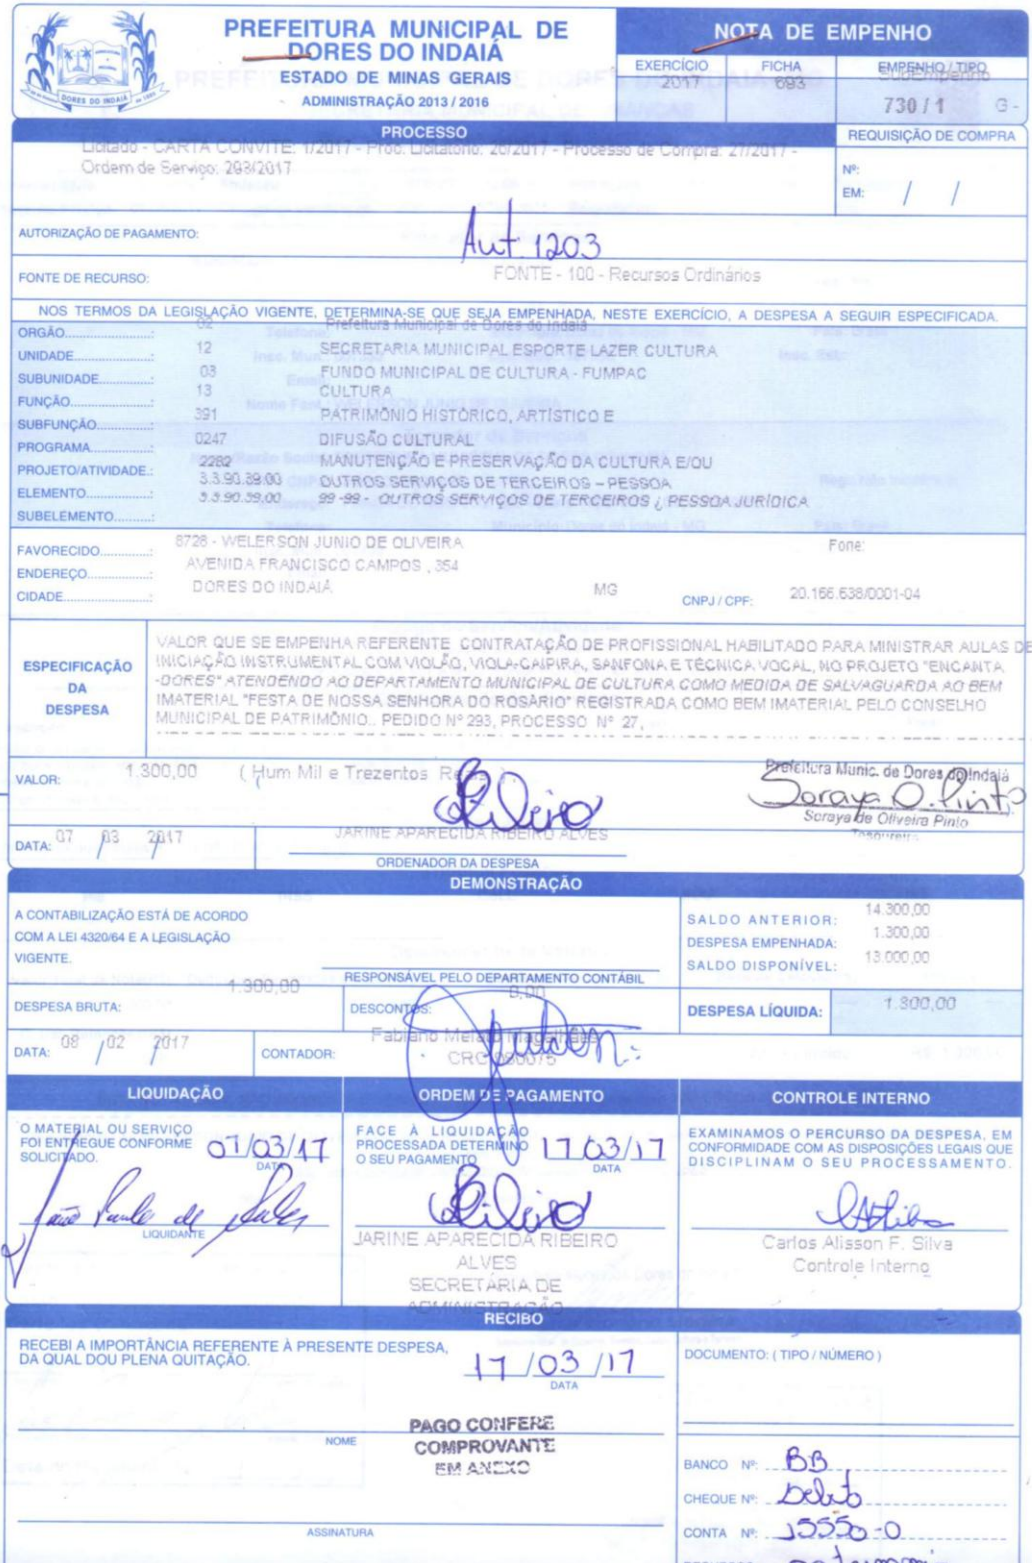 PREFEITURA MUNICIPAL DE
DORES DO INDAIÁ
ESTADO DE MINAS GERAIS
ADMINISTRAÇÃO 2013 / 2016
DORES DO INDAIÁ
NOTA DE EMPENHO
EXERCÍCIO
2017
FICHA
693
EMPENHO / TIPO
SubEmpenho
730 / 1 G -
PROCESSO
Licitado - CARTA CONVITE: 1/2017 - Proc. Licitatório: 26/2017 - Processo de Compra: 27/2017 -
Ordem de Serviço: 293/2017
REQUISIÇÃO DE COMPRA
Nº:
EM: / /
AUTORIZAÇÃO DE PAGAMENTO:
Aut. 1203
FONTE DE RECURSO:
FONTE - 100 - Recursos Ordinários
NOS TERMOS DA LEGISLAÇÃO VIGENTE, DETERMINA-SE QUE SEJA EMPENHADA, NESTE EXERCÍCIO, A DESPESA A SEGUIR ESPECIFICADA.
ORGÃO..............: 02 Prefeitura Municipal de Dores do Indaiá
UNIDADE..............: 12 SECRETARIA MUNICIPAL ESPORTE LAZER CULTURA
SUBUNIDADE..............: 03 FUNDO MUNICIPAL DE CULTURA - FUMPAC
FUNÇÃO..............: 13 CULTURA
SUBFUNÇÃO..............: 391 PATRIMÔNIO HISTÓRICO, ARTÍSTICO E
PROGRAMA..............: 0247 DIFUSÃO CULTURAL
PROJETO/ATIVIDADE.: 2282 MANUTENÇÃO E PRESERVAÇÃO DA CULTURA E/OU
ELEMENTO..............: 3.3.90.39.00 OUTROS SERVIÇOS DE TERCEIROS – PESSOA
SUBELEMENTO..............: 3.3.90.39.00 99-99 - OUTROS SERVIÇOS DE TERCEIROS ¿ PESSOA JURÍDICA
FAVORECIDO..............: 8728 - WELERSON JUNIO DE OLIVEIRA Fone:
ENDEREÇO..............: AVENIDA FRANCISCO CAMPOS , 354
CIDADE..............: DORES DO INDAIÁ MG CNPJ / CPF: 20.166.638/0001-04
ESPECIFICAÇÃO
DA
DESPESA
VALOR QUE SE EMPENHA REFERENTE CONTRATAÇÃO DE PROFISSIONAL HABILITADO PARA MINISTRAR AULAS DE
INICIAÇÃO INSTRUMENTAL COM VIOLÃO, VIOLA-CAIPIRA, SANFONA E TÉCNICA VOCAL, NO PROJETO "ENCANTA
-DORES" ATENDENDO AO DEPARTAMENTO MUNICIPAL DE CULTURA COMO MEDIDA DE SALVAGUARDA AO BEM
IMATERIAL "FESTA DE NOSSA SENHORA DO ROSÁRIO" REGISTRADA COMO BEM IMATERIAL PELO CONSELHO
MUNICIPAL DE PATRIMÔNIO.. PEDIDO Nº 293, PROCESSO Nº 27,
VALOR: 1.300,00 ( Hum Mil e Trezentos Reais )
Ribeiro
Prefeitura Munic. de Dores do Indaiá
Soraya O. Pinto
Soraya de Oliveira Pinto
Tesoureira
DATA: 07 / 03 / 2017
JARINE APARECIDA RIBEIRO ALVES
ORDENADOR DA DESPESA
DEMONSTRAÇÃO
A CONTABILIZAÇÃO ESTÁ DE ACORDO
COM A LEI 4320/64 E A LEGISLAÇÃO
VIGENTE.
RESPONSÁVEL PELO DEPARTAMENTO CONTÁBIL
SALDO ANTERIOR: 14.300,00
DESPESA EMPENHADA: 1.300,00
SALDO DISPONÍVEL: 13.000,00
DESPESA BRUTA: 1.300,00
DESCONTOS: 0,00
DESPESA LÍQUIDA: 1.300,00
DATA: 08 / 02 / 2017
CONTADOR:
Fabiano Magalhães
CRC
LIQUIDAÇÃO
O MATERIAL OU SERVIÇO
FOI ENTREGUE CONFORME
SOLICITADO.
07/03/17
DATA
João Paulo de Sales
LIQUIDANTE
ORDEM DE PAGAMENTO
FACE À LIQUIDAÇÃO
PROCESSADA DETERMINO
O SEU PAGAMENTO
17/03/17
DATA
Ribeiro
JARINE APARECIDA RIBEIRO
ALVES
SECRETÁRIA DE
ADMINISTRAÇÃO
CONTROLE INTERNO
EXAMINAMOS O PERCURSO DA DESPESA, EM
CONFORMIDADE COM AS DISPOSIÇÕES LEGAIS QUE
DISCIPLINAM O SEU PROCESSAMENTO.
Carlos Alisson F. Silva
Controle Interno
RECIBO
RECEBI A IMPORTÂNCIA REFERENTE À PRESENTE DESPESA,
DA QUAL DOU PLENA QUITAÇÃO.
17/03/17
DATA
NOME
PAGO CONFERE
COMPROVANTE
EM ANEXO
ASSINATURA
DOCUMENTO: ( TIPO / NÚMERO )
BANCO Nº: BB
CHEQUE Nº: Debito
CONTA Nº: 15550-0